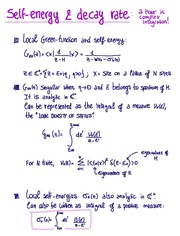 Self-energy & decay rate:
a tour in complex integration!
Local Green-function and self-energy:
G_xx(z) = <x| 1/(z - H) |x> = 1/(z - W(x) - σ_x(z))
z ∈ ℂ⁺ = {z = E + iη, η>0}; X = Site on a lattice of N sites
G_xx(z) singular when η→0 and E belongs to spectrum of H.
It is analytic in ℂ⁺
Can be represented as the integral of a measure V_x(E),
the "local density of states":
G_xx(z) = ∫_{-∞}^{∞} dE' V_x(E')/(z - E')
eigenvalues of H
For N finite, V_x(E) = Σ |<x|α>|² δ(E - E_α)
eigenvectors of H
Local self-energies σ_x also analytic in ℂ⁺
Can also be written as integral of a positive measure:
σ_x(z) = ∫_{-∞}^{∞} dE' μ_x(E')/(z - E')